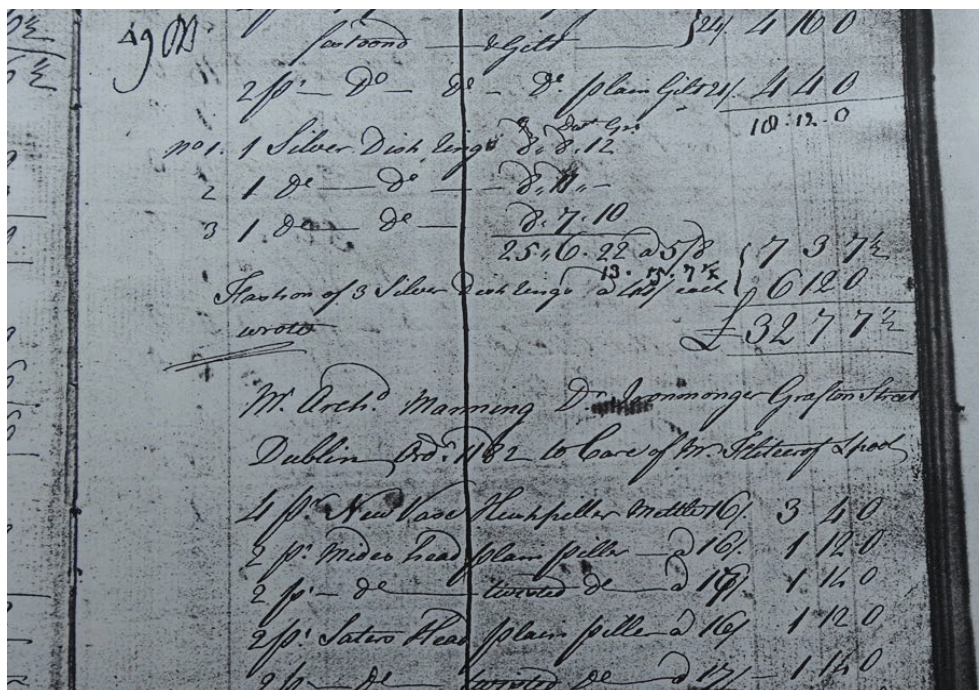 festoond — & Gilt — } 24/ 4 16 0
2 pr — Do — Do — Do plain Gilt 21/ 4 4 0
18 . 12 . 0
no 1. 1 Silver Dish ring 8 . 8 . 12
2 1 Do — Do — 8 . 11 . –
3 1 Do — Do — 8 . 7 . 10
25 . 6 . 22 a 5/8 { 7 3 7½
13 . 15 . 7½
Fashion of 3 Silver Dish rings a each 6 12 0
wrote £ 32 7 7½
Mr. Archd. Manning Do Ironmonger Grafton Street
Dublin Ordr. 1182 to Care of Mr. Lpool
4 pr. New Vase piller 16/ 3 4 0
2 pr. head plain piller — a 16/. 1 12 0
2 pr — do — twisted do — a 17/ 1 14 0
2 pr. Saters Head plain piller a 16/ 1 12 0
2 pr — do — twisted do — a 17/ — 1 14 0